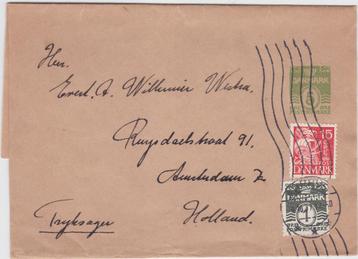 Hrn.
Evert. A. Willemier Westra.
Ruysdaelstraat 91.
Amsterdam Z
Holland.
Tryksager
DANMARK
15
DANMARK
1
DANMARK